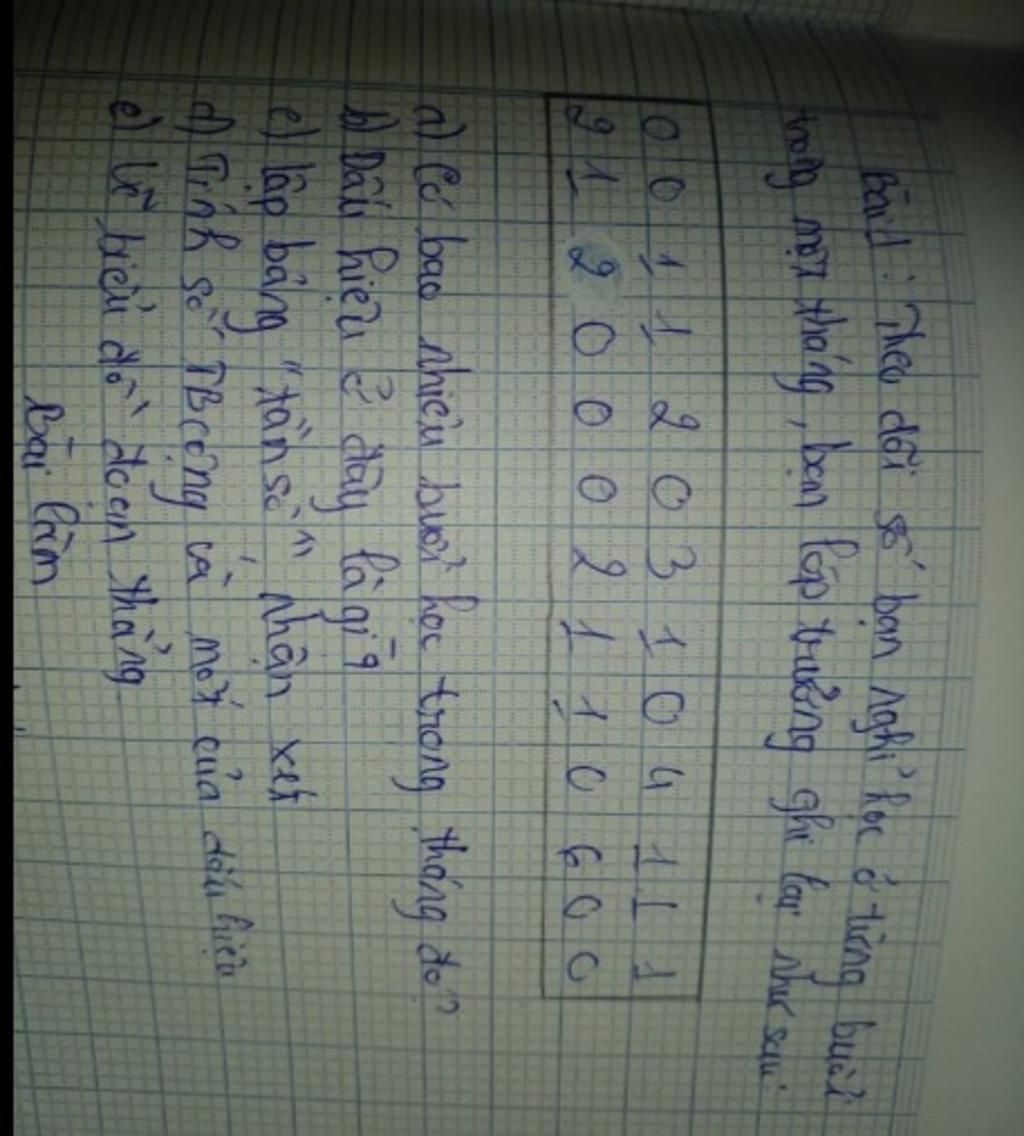 Bài 1: Theo dõi số bạn nghỉ học ở từng buổi
trong một tháng, bạn lớp trưởng ghi lại như sau:
0 0 1 1 2 0 3 1 0 4 1 1 1
2 1 2 0 0 0 2 1 1 0 6 0 0
a) Có bao nhiêu buổi học trong tháng đó?
b) Dấu hiệu ở đây là gì?
c) lập bảng "tần số" nhận xét
d) Tính số TB cộng và mốt của dấu hiệu
e) Vẽ biểu đồ đoạn thẳng
Bài làm